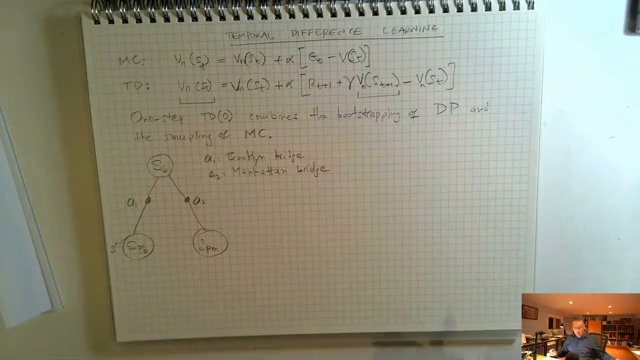 TEMPORAL DIFFERENCE LEARNING
MC: Vπ(St) = Vπ(St) + α [Gt − V(St)]
TD: Vπ(S) = Vπ(St) + α [Rt+1 + γVπ(St+1) − Vπ(St)]
One-step TD(0) combines the bootstrapping of DP and
the sampling of MC.
a1: Brooklyn bridge
a2: Manhattan bridge
Sb
a1 a2
s' Spb Spm